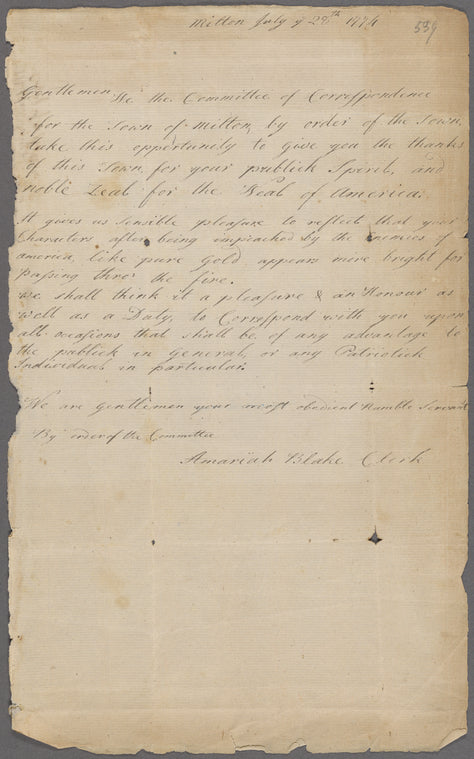 Milton July ye 28th 1774
539
Gentlemen We the Committee of Correspondence
for the Town of Milton, by order of the Town,
take this opportunity to give you the thanks
of this Town for your publick Spirit, and
noble Zeal for the Weal of America.
It gives us sensible pleasure to reflect that your
Characters after being impeached by the Enemies of
america, like pure Gold appears more bright for
passing thro' the fire.
we shall think it a pleasure & an Honour as
well as a Duty, to Correspond with you upon
all occasions that shall be of any advantage to
the publick in General, or any Patriotick
Individual in particular.
We are Gentlemen your most obedient Humble Servants
By order of the Committee
Amariah Blake Clerk